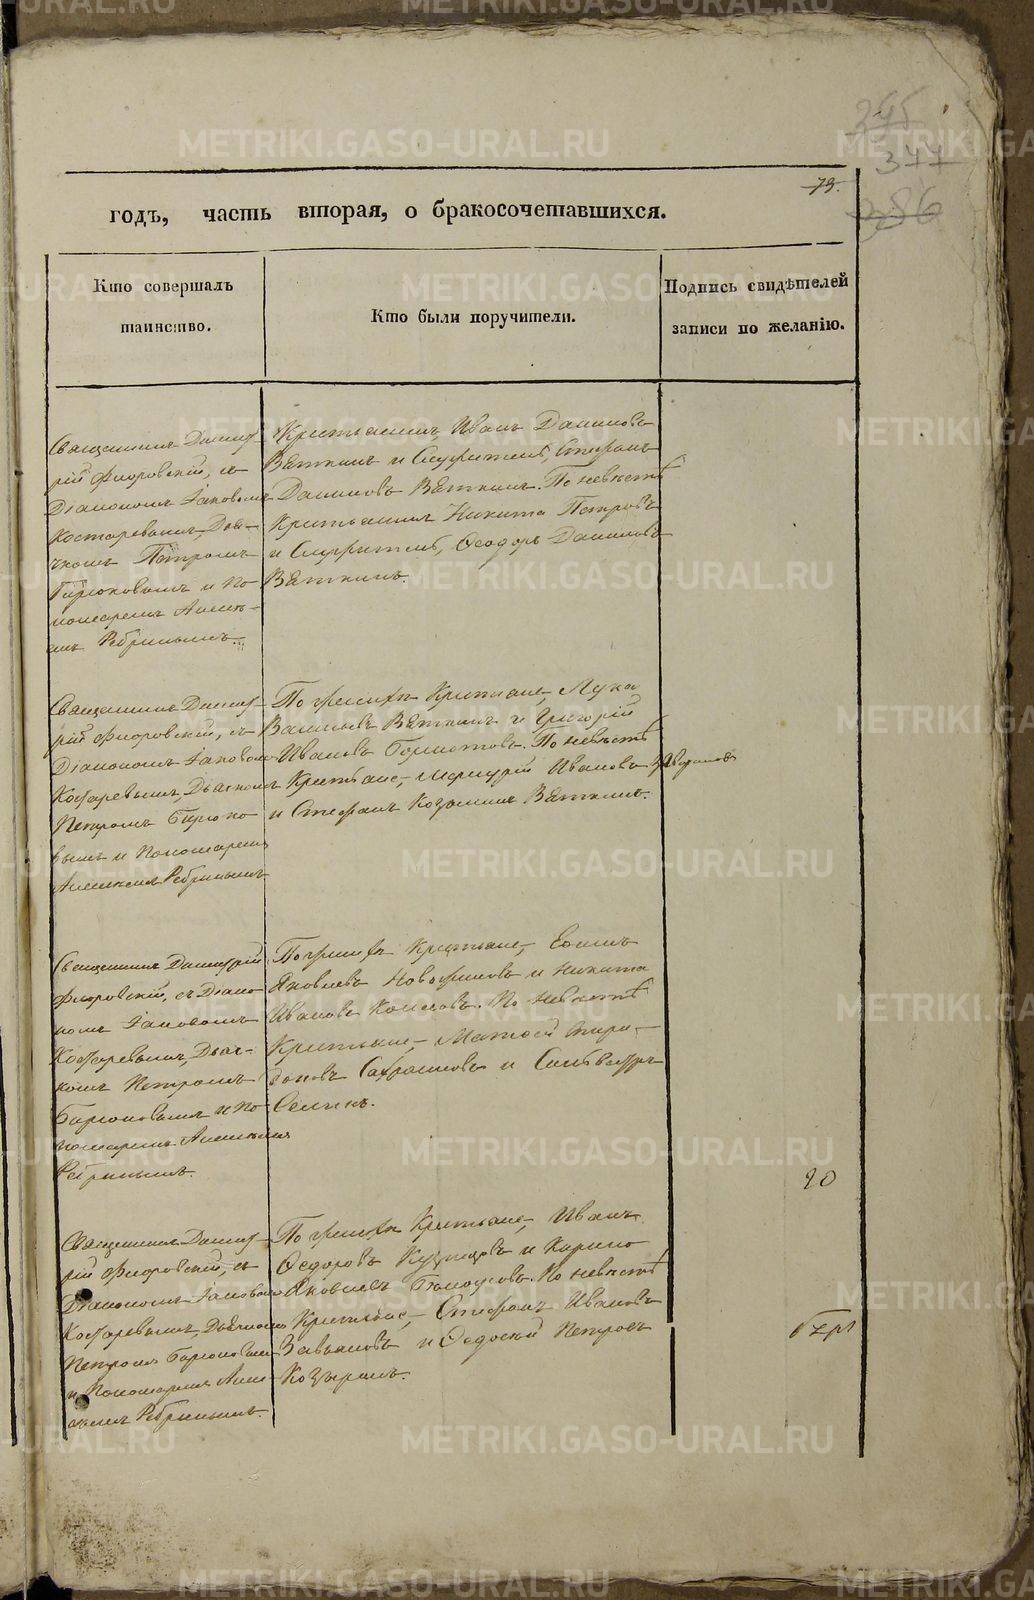 345
344
386
73.
годъ, часть вторая, о бракосочетавшихся.
Кто совершалъ
таинство.
Кто были поручители.
Подпись свидѣтелей
записи по желанію.
Священникъ Димит-
рій Флоровскій, съ
Діакономъ Іаковомъ
Костаревымъ, Дья-
чкомъ Петромъ
Бирюковымъ и По-
номаремъ Алексѣ-
емъ Ребринымъ.
Крестьянинъ, Иванъ Даниловъ
Вяткинъ и Служитель, Стефанъ
Даниловъ Вяткинъ. По невѣстѣ
Крестьянинъ Никита Петровъ
и Служитель, Ѳеодоръ Даниловъ
Вяткинъ.
Священникъ Димит-
рій Флоровскій, съ
Діакономъ Іаковомъ
Костаревымъ, Дьячкомъ
Петромъ Бирюко-
вымъ и Пономаремъ
Алексѣемъ Ребринымъ
По женихѣ Крестьяне, Лука
Васильевъ Вяткинъ и Григорій
Ивановъ. По невѣстѣ
Крестьяне, Меркурій Ивановъ
и Стефанъ Козминъ Вяткинъ.
Священникъ Димитрій
Флоровскій, съ Діако-
номъ Іаковомъ
Костаревымъ, Дьяч-
комъ Петромъ
Бирюковымъ и По-
номаремъ Алексѣемъ
Ребринымъ.
По женихѣ Крестьяне,
Яковлевъ и Никита
Ивановъ. По невѣстѣ
Крестьяне, Матвей Спири-
доновъ и Сильвестръ
Селинъ.
20
Священникъ Димит-
рій Флоровскій, съ
Діакономъ Іаковомъ
Костаревымъ, Дьячкомъ
Петромъ Бирюковымъ
и Пономаремъ Алек-
сѣемъ Ребринымъ.
По женихѣ Крестьяне, Иванъ
Ѳедоровъ Кузнецовъ и
Яковлевъ Бѣлоусовъ. По невѣстѣ
Крестьяне, Стефанъ Ивановъ
Завьяловъ и Ѳедосій Петровъ
Козыринъ.